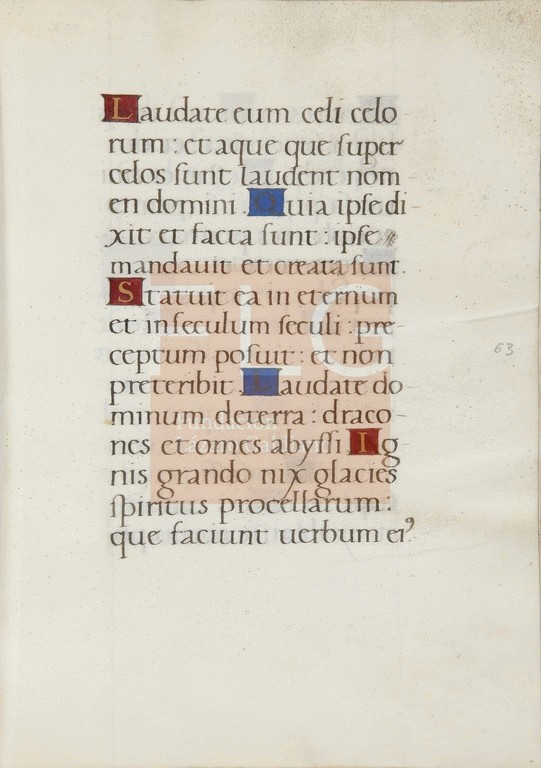 Laudate eum celi celo-
rum : et aque que super
celos sunt laudent nom-
en domini . Quia ipse di-
xit et facta sunt : ipse
mandauit et creata sunt.
Statuit ea in eternum
et in seculum seculi : pre-
ceptum posuit : et non
preteribit . Laudate do-
minum de terra : draco-
nes et omes abyssi Ig-
nis grando nix glacies
spiritus procellarum :
que faciunt uerbum ei⁹
63
FLG
Fundación